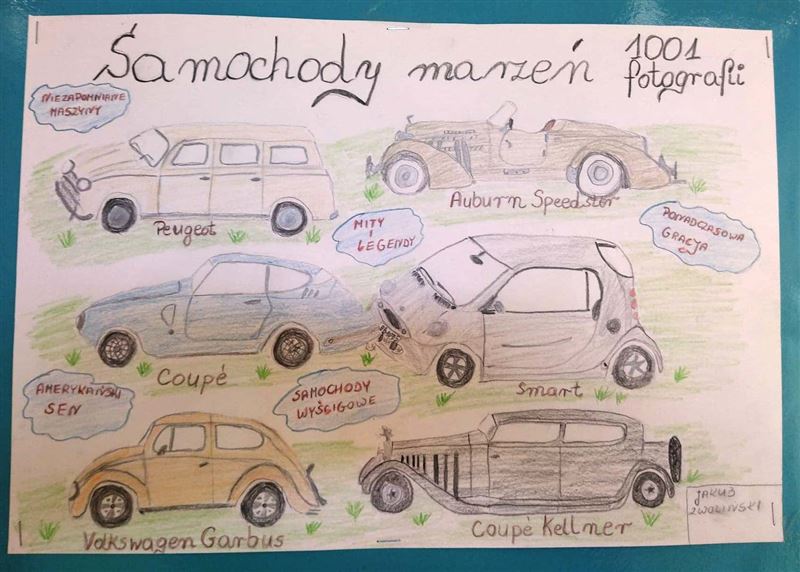 Samochody marzeń
1001
fotografii
NIEZAPOMNIANE
MASZYNY
Peugeot
Auburn Speedster
MITY
I
LEGENDY
PONADCZASOWA
GRACJA
Coupé
Smart
AMERYKAŃSKI
SEN
SAMOCHODY
WYŚCIGOWE
Volkswagen Garbus
Coupé Kellner
JAKUB
ZWOLIŃSKI